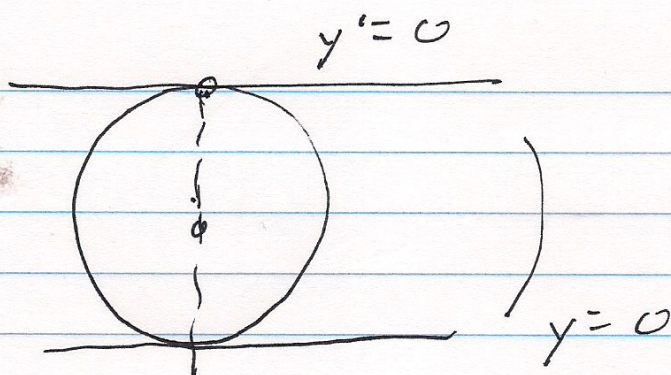 y' = 0
y = 0